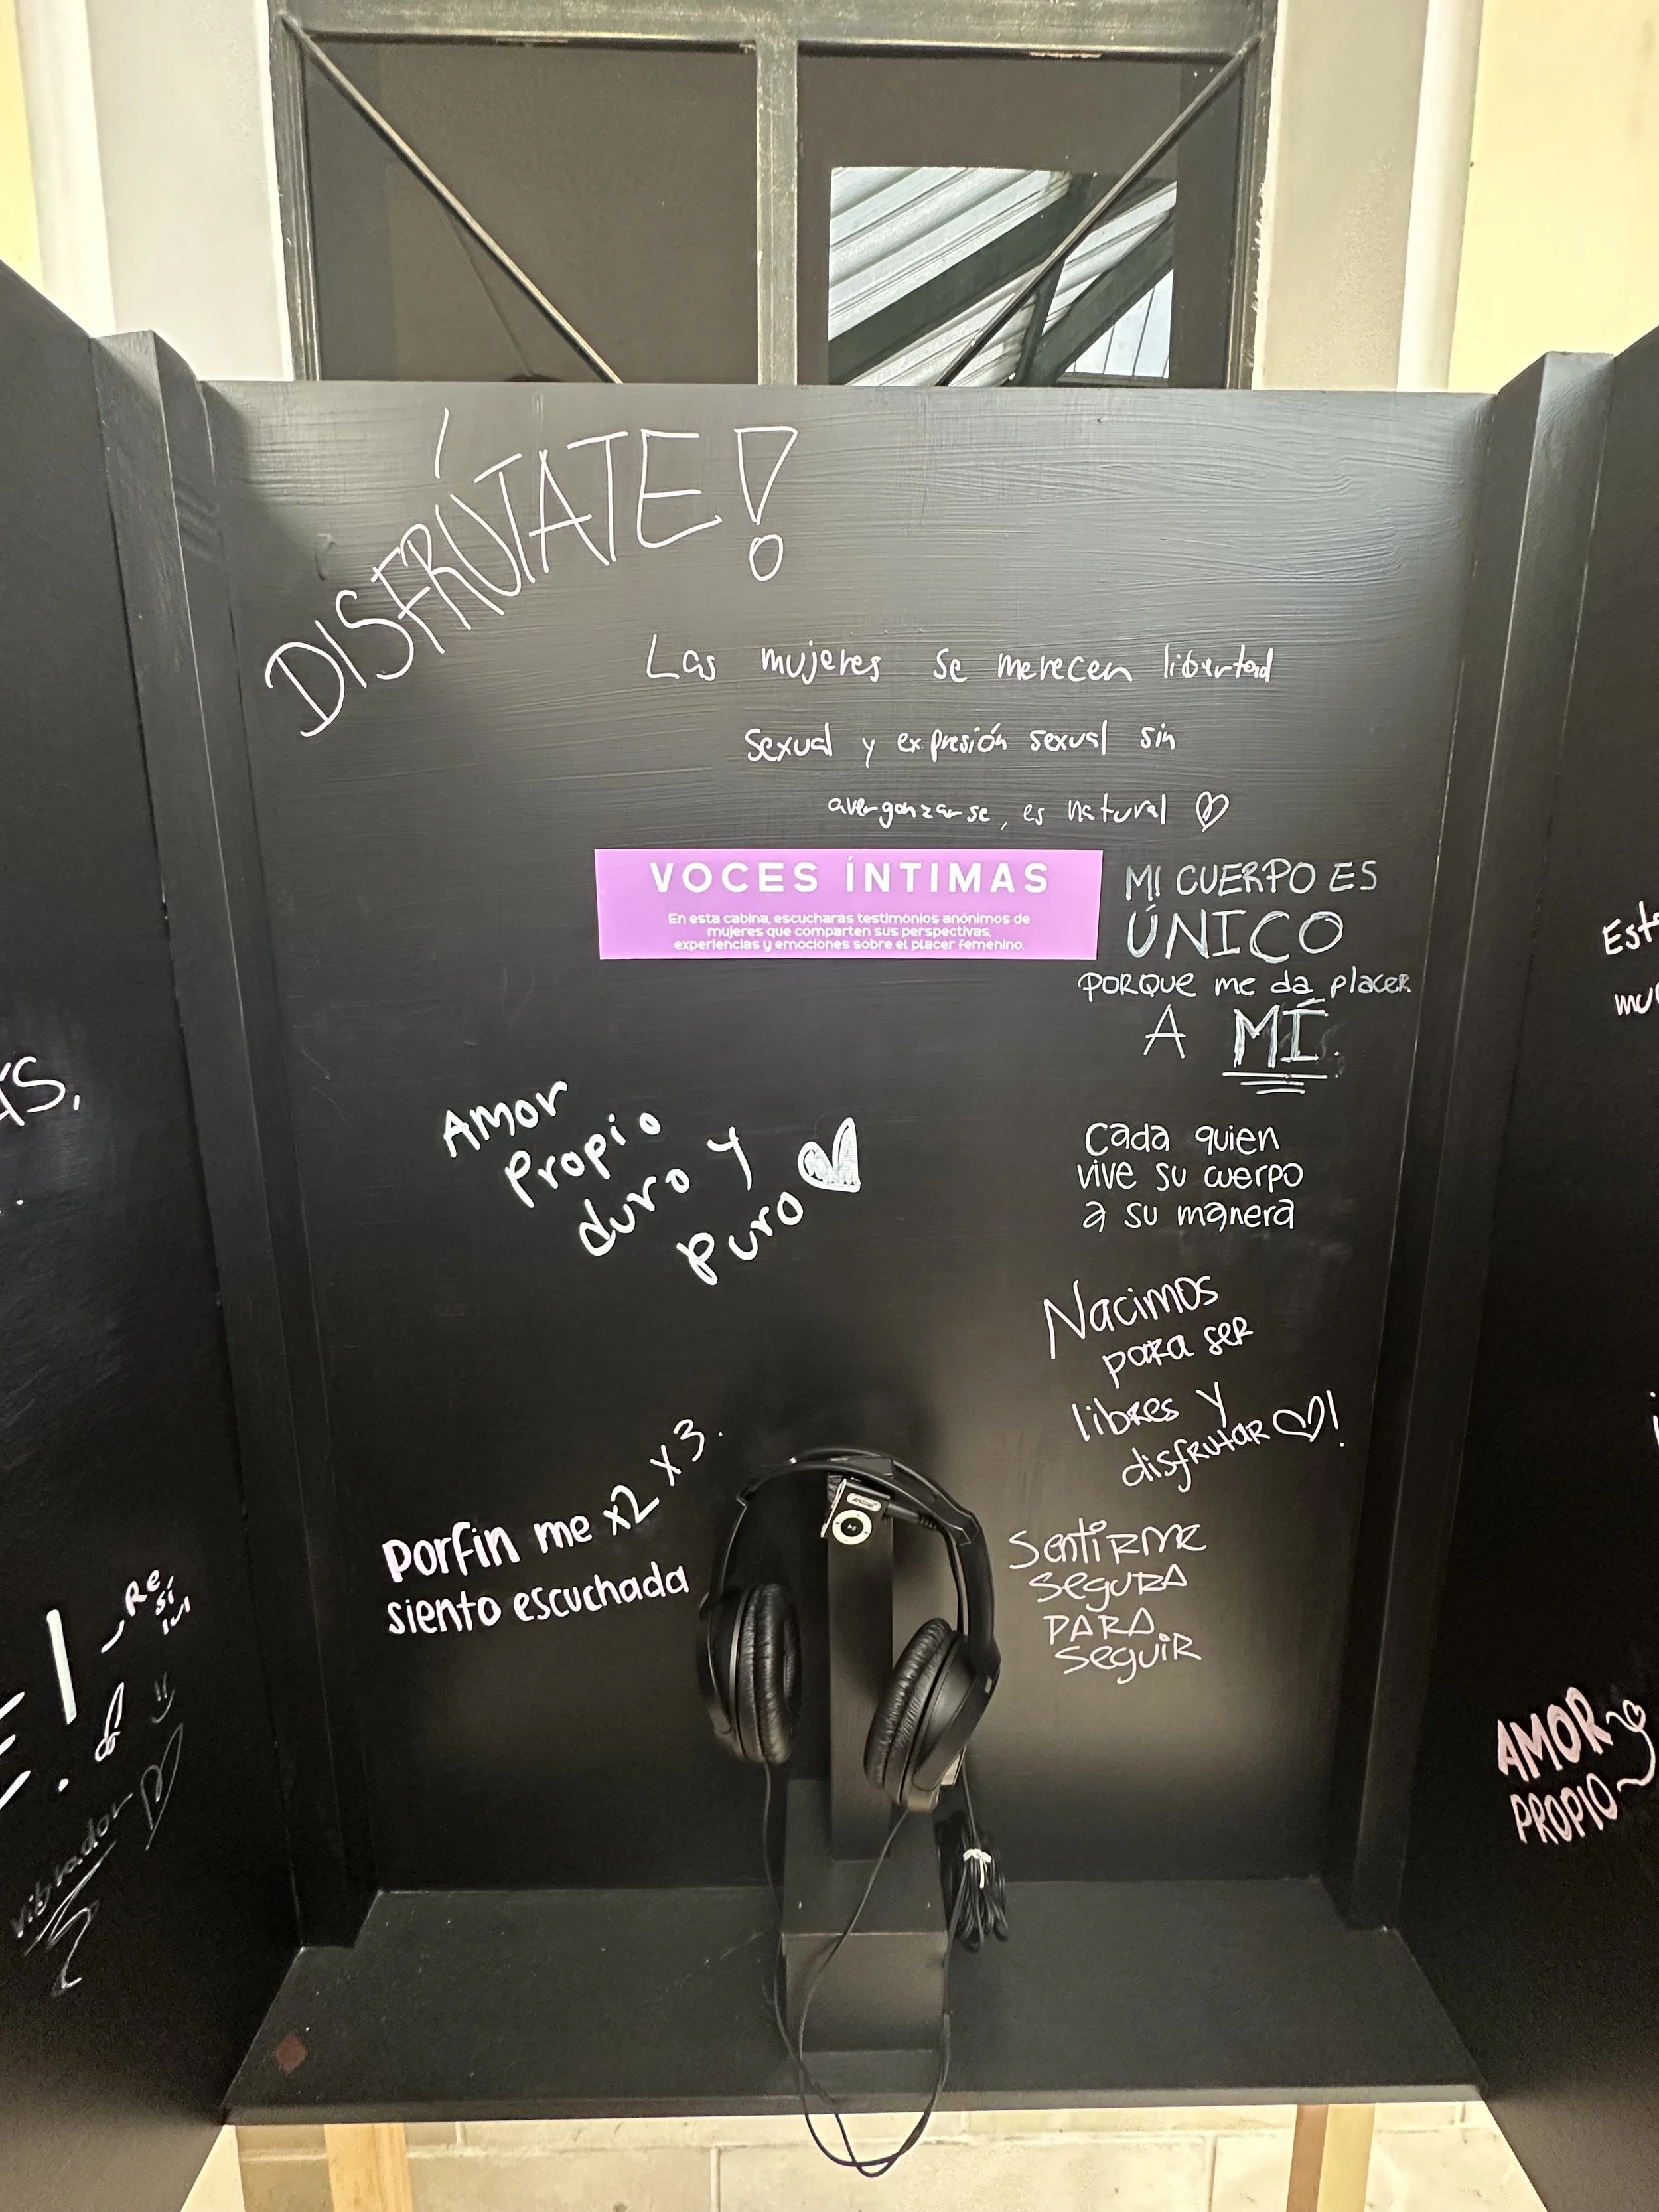 DISFRÚTATE!
Las mujeres se merecen libertad
sexual y expresión sexual sin
avergonzarse, es natural ♡
VOCES ÍNTIMAS
En esta cabina, escucharás testimonios anónimos de
mujeres que comparten sus perspectivas,
experiencias y emociones sobre el placer femenino.
MI CUERPO ES
ÚNICO
PORQUE me da placer
A MÍ.
Amor
Propio
duro y
puro
Cada quien
vive su cuerpo
a su manera
Nacimos
para ser
libres y
disfrutar ♡!
porfin me x2 x3.
siento escuchada
SentiRME
SeguRA
PARA
SeguiR
AMOR
PROPIO
vibrador